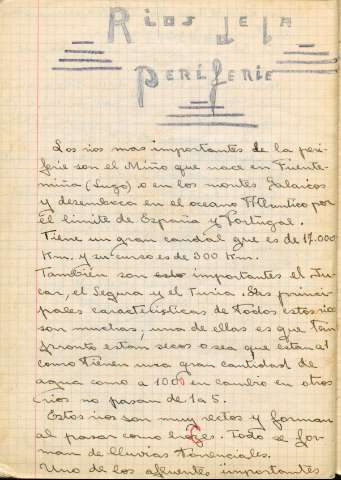 Rios de la
Periferie
Los rios mas importantes de la peri-
ferie son el Miño que nace en Fuente-
miña (Lugo) o en los montes Galaicos
y desemboca en el oceano Atlantico por
el limite de España y Portugal.
Tiene un gran caudal que es de 17.000
Km. y su curso es de 300 Km.
También son importantes el Ju-
car, el Segura y el Turia. Las princi-
pales caracteristicas de todos estos rios
son muchas, una de ellas es que tan
pronto estan secos o sea que estan al
como tienen una gran cantidad de
agua como a 100 en cambio en otros
rios no pasan de 1 a 5.
Estos rios son muy rectos y forman
al pasar como hozes. Todo se for-
man de lluvias torenciales.
Uno de los afluentes importantes